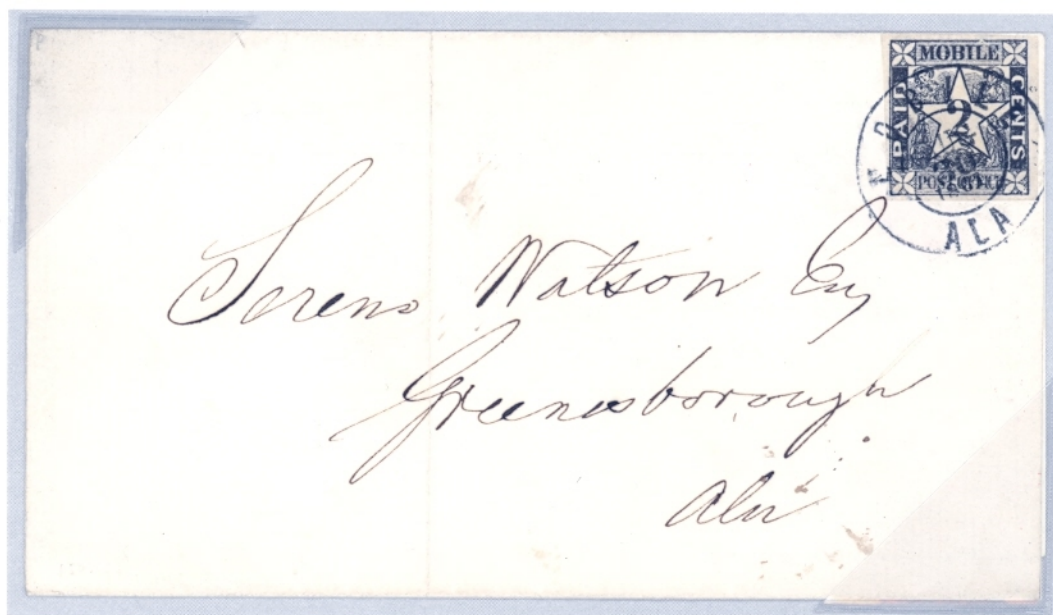 MOBILE
PAID 2 CENTS
POST OFFICE
MOBILE
ALA
Sereno Watson Esq
Greensborough
Ala